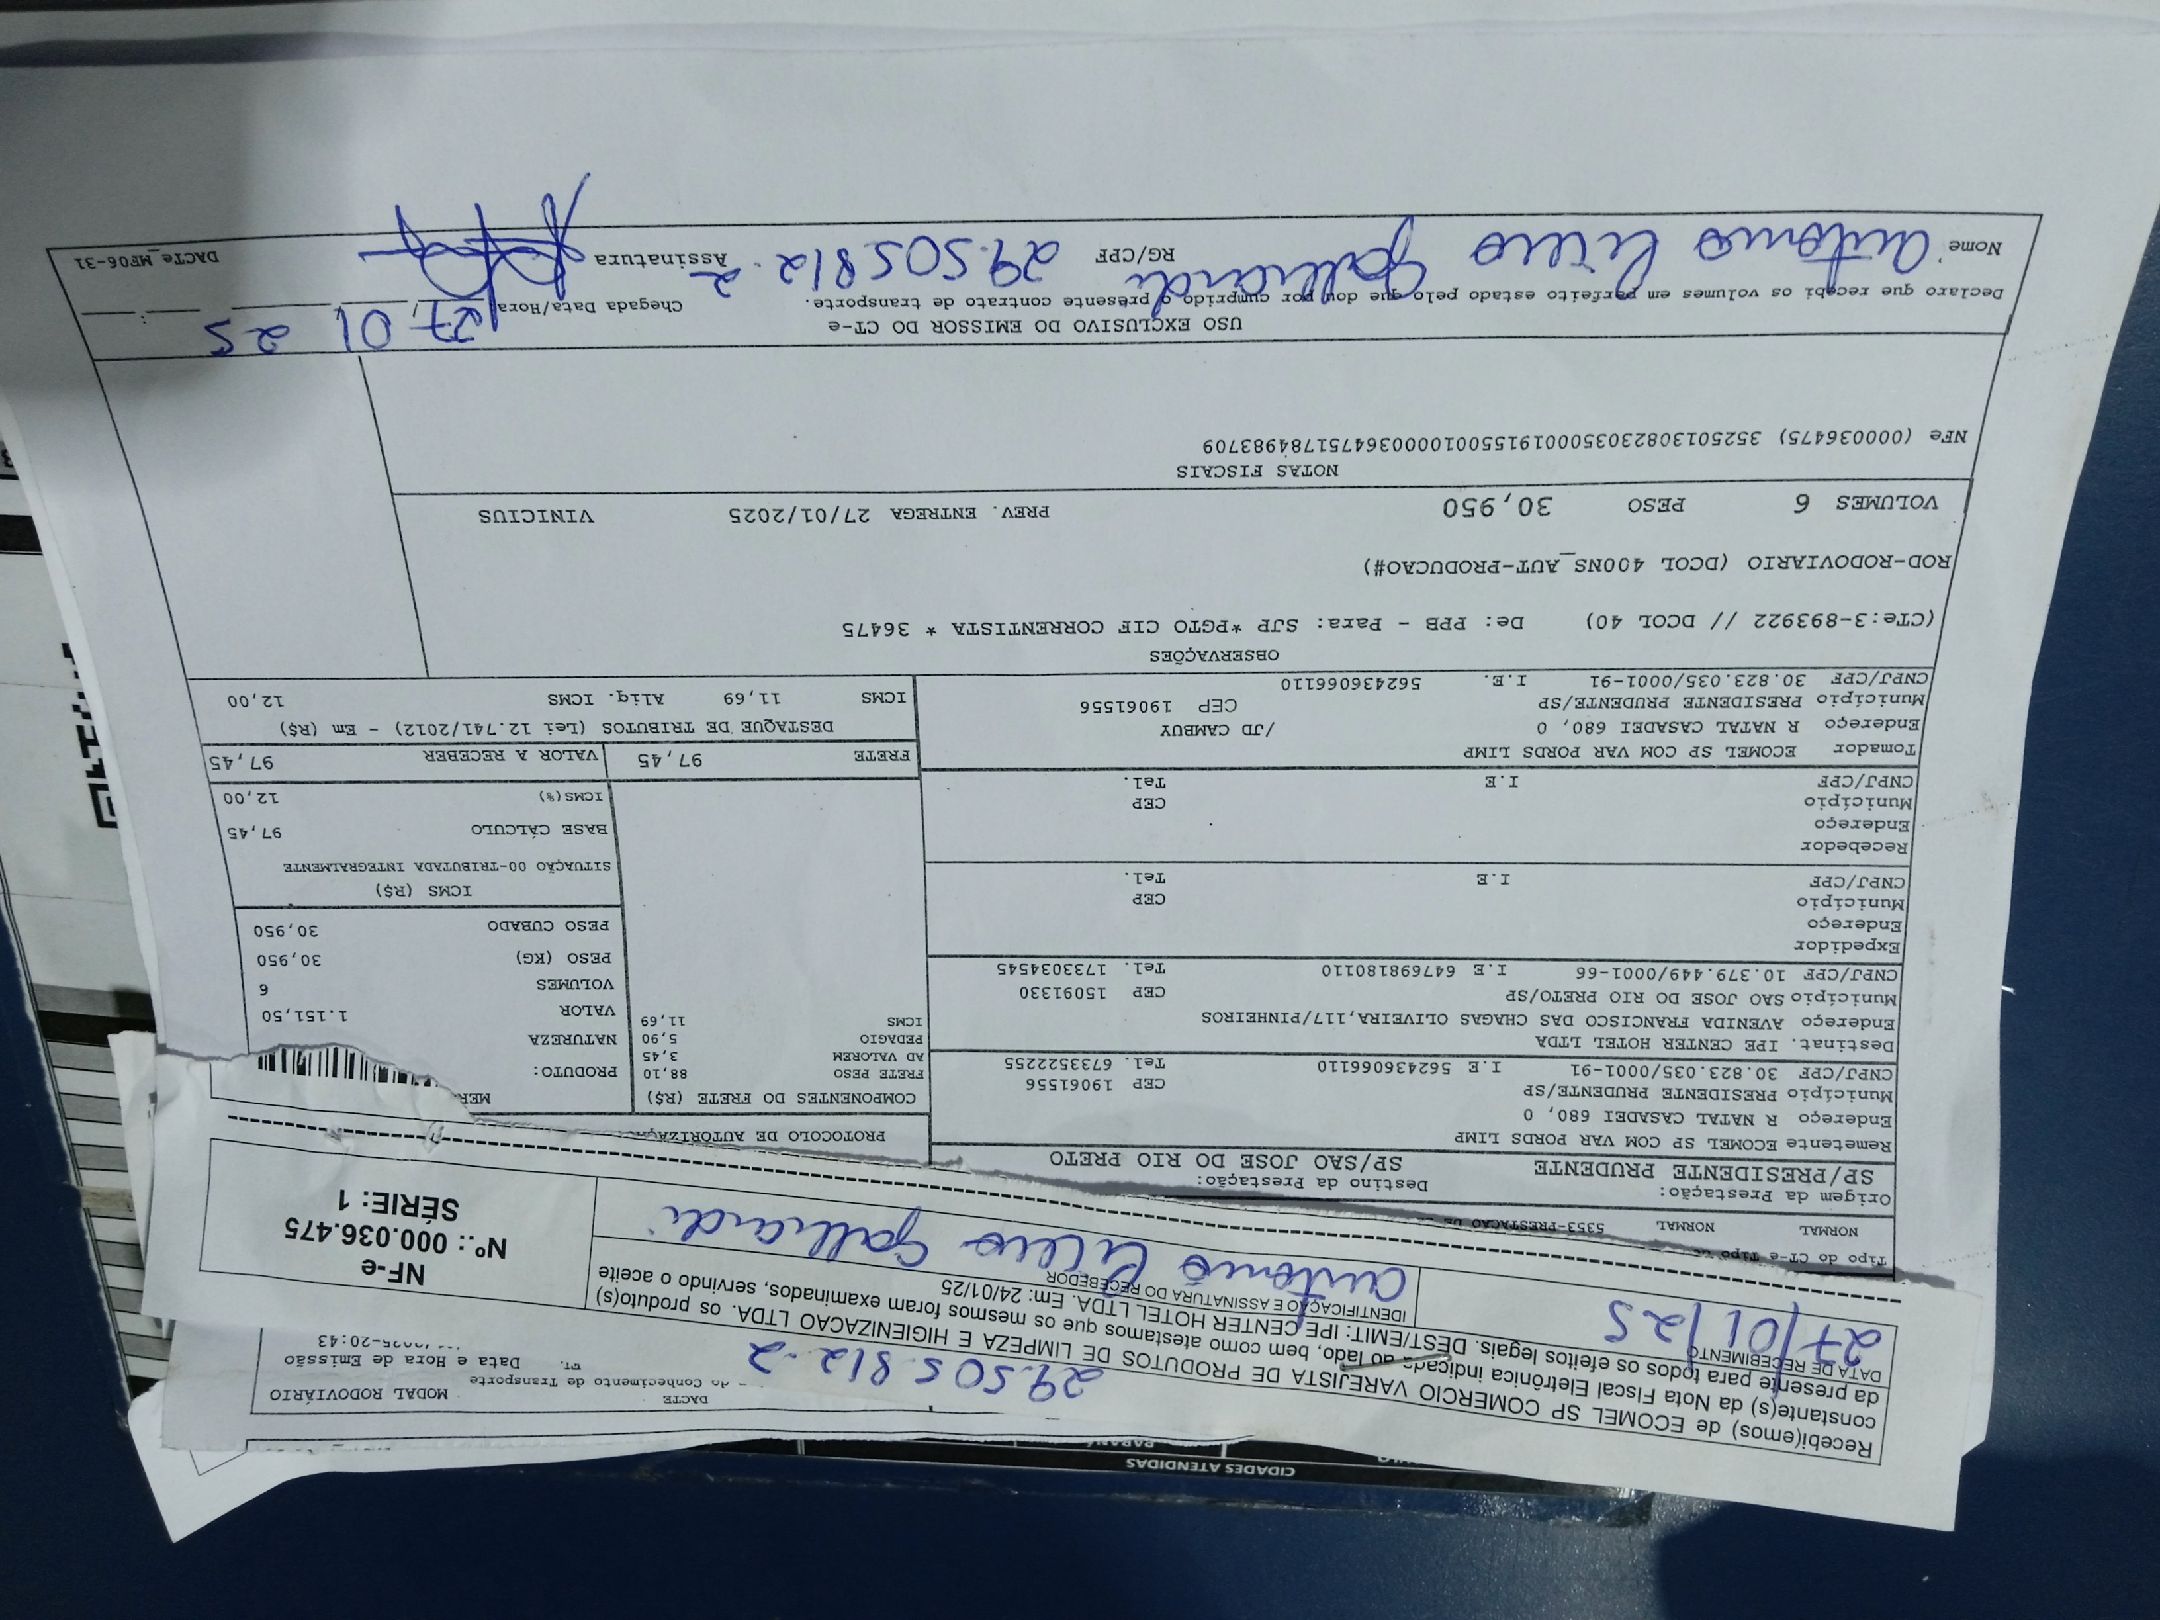 CIDADES ATENDIDAS
DACTE
MODAL RODOVIÁRIO
do Conhecimento de Transporte
Data e Hora de Emissão
-20:43
29.505.812-2
Recebi(emos) de ECOMEL SP COMERCIO VAREJISTA DE PRODUTOS DE LIMPEZA E HIGIENIZACAO LTDA. os produto(s)
constante(s) da Nota Fiscal Eletrônica indicada ao lado, bem como atestamos que os mesmos foram examinados, servindo o aceite
da presente para todos os efeitos legais. DEST/EMIT: IPE CENTER HOTEL LTDA. Em: 24/01/25
DATA DE RECEBIMENTO
27/01/25
IDENTIFICAÇÃO E ASSINATURA DO RECEBEDOR
NF-e
Nº.: 000.036.475
SÉRIE: 1
Tipo do CT-e
NORMAL NORMAL 5353-PRESTACAO DE
Origem da Prestação:
SP/PRESIDENTE PRUDENTE
Destino da Prestação:
SP/SAO JOSE DO RIO PRETO
Remetente ECOMEL SP COM VAR PORDS LIMP
Endereço R NATAL CASADEI 680, 0
Município PRESIDENTE PRUDENTE/SP CEP 19061556
CNPJ/CPF 30.823.035/0001-91 I.E 562436066110 Tel. 6733522255
Destinat. IPE CENTER HOTEL LTDA
Endereço AVENIDA FRANCISCO DAS CHAGAS OLIVEIRA,117/PINHEIROS
Município SAO JOSE DO RIO PRETO/SP CEP 15091330
CNPJ/CPF 10.379.449/0001-66 I.E 647698180110 Tel. 1733034545
Expedidor
Endereço
Município CEP
CNPJ/CPF I.E Tel.
Recebedor
Endereço
Município CEP
CNPJ/CPF I.E Tel.
Tomador ECOMEL SP COM VAR PORDS LIMP
Endereço R NATAL CASADEI 680, 0 /JD CAMBUY
Município PRESIDENTE PRUDENTE/SP CEP 19061556
CNPJ/CPF 30.823.035/0001-91 I.E. 562436066110
PROTOCOLO DE AUTORIZAÇ
COMPONENTES DO FRETE (R$)
FRETE PESO 88,10
AD VALOREM 3,45
PEDAGIO 5,90
ICMS 11,69
MER
PRODUTO:
NATUREZA
VALOR 1.151,50
VOLUMES 6
PESO (KG) 30,950
PESO CUBADO 30,950
ICMS (R$)
SITUAÇÃO 00-TRIBUTADA INTEGRALMENTE
BASE CÁLCULO 97,45
ICMS(%) 12,00
FRETE 97,45 VALOR A RECEBER 97,45
DESTAQUE DE TRIBUTOS (Lei 12.741/2012) - Em (R$)
ICMS 11,69 Aliq. ICMS 12,00
OBSERVAÇÕES
(CTe:3-893922 // DCOL 40) De: PPB - Para: SJP *PGTO CIF CORRENTISTA * 36475
ROD-RODOVIARIO (DCOL 400NS_AUT-PRODUCAO#)
VOLUMES 6 PESO 30,950 PREV. ENTREGA 27/01/2025 VINICIUS
NOTAS FISCAIS
NFe (000036475) 35250130823035000191550010000364751784983709
USO EXCLUSIVO DO EMISSOR DO CT-e
Declaro que recebi os volumes em perfeito estado pelo que dou por cumprido o presente contrato de transporte.
Chegada Data/Hora 27 01 25
Nome RG/CPF 29.505812-2 Assinatura
DACTe_MF06-31